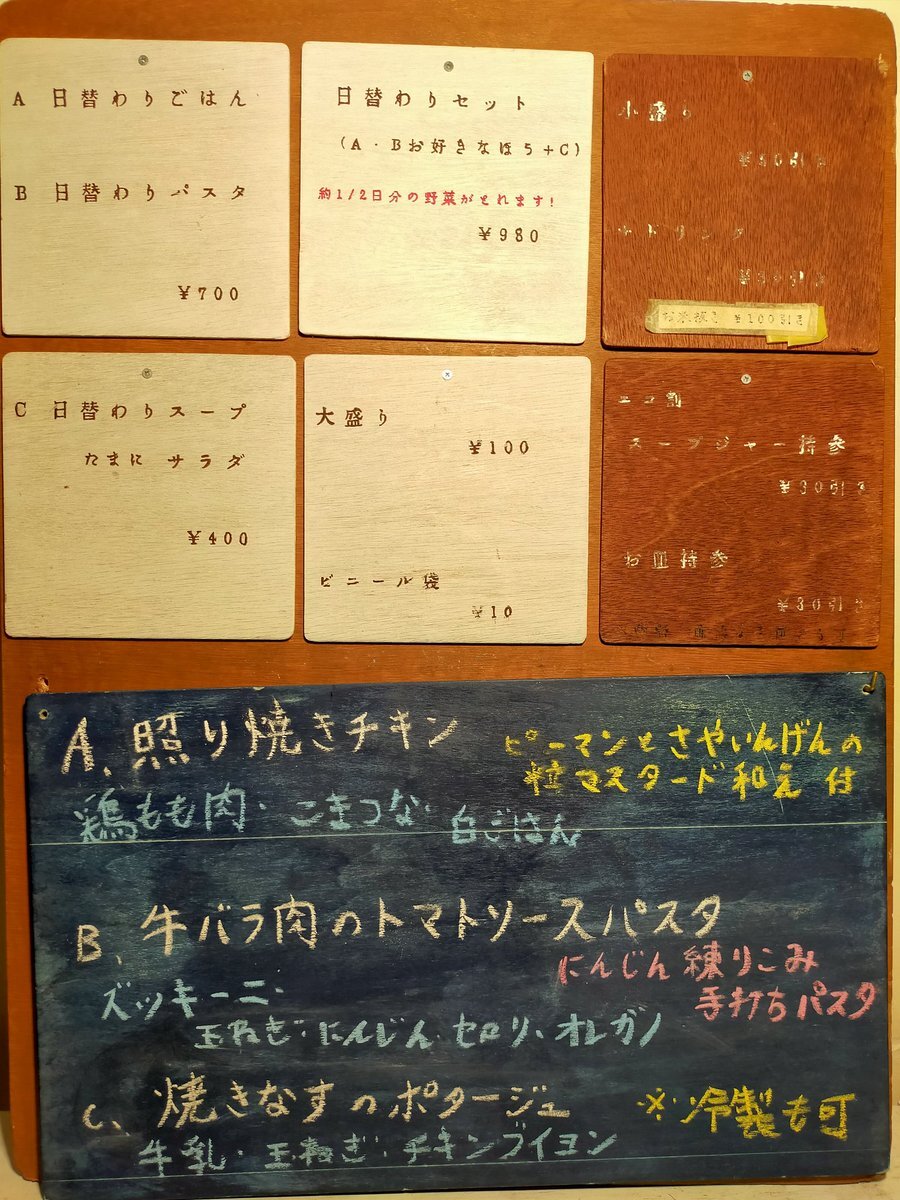 A 日替わりごはん
B 日替わりパスタ
¥700
日替わりセット
(A・Bお好きなほう+C)
約1/2日分の野菜がとれます!
¥980
小盛り
¥50引き
¥100引き
C 日替わりスープ
たまに サラダ
¥400
大盛り
¥100
ビニール袋
¥10
エコ割
スープジャー持参
¥30引き
お皿持参
¥30引き
A、照り焼きチキン
ピーマンとさやいんげんの
粒マスタード和え 付
鶏もも肉・こまつな・
白ごはん
B、牛バラ肉のトマトソースパスタ
にんじん練りこみ
手打ちパスタ
ズッキーニ・
玉ねぎ・にんじん セロリ、オレガノ
C、焼きなすのポタージュ
※冷製も可
牛乳・玉ねぎ・チキンブイヨン